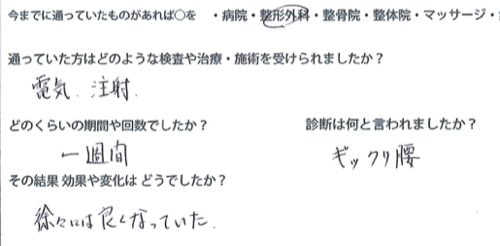 今までに通っていたものがあれば○を ・病院・整形外科・整骨院・整体院・マッサージ・
通っていた方はどのような検査や治療・施術を受けられましたか？
電気、注射、
どのくらいの期間や回数でしたか？ 診断は何と言われましたか？
一週間 ギックリ腰
その結果 効果や変化は どうでしたか？
徐々には良くなっていた、